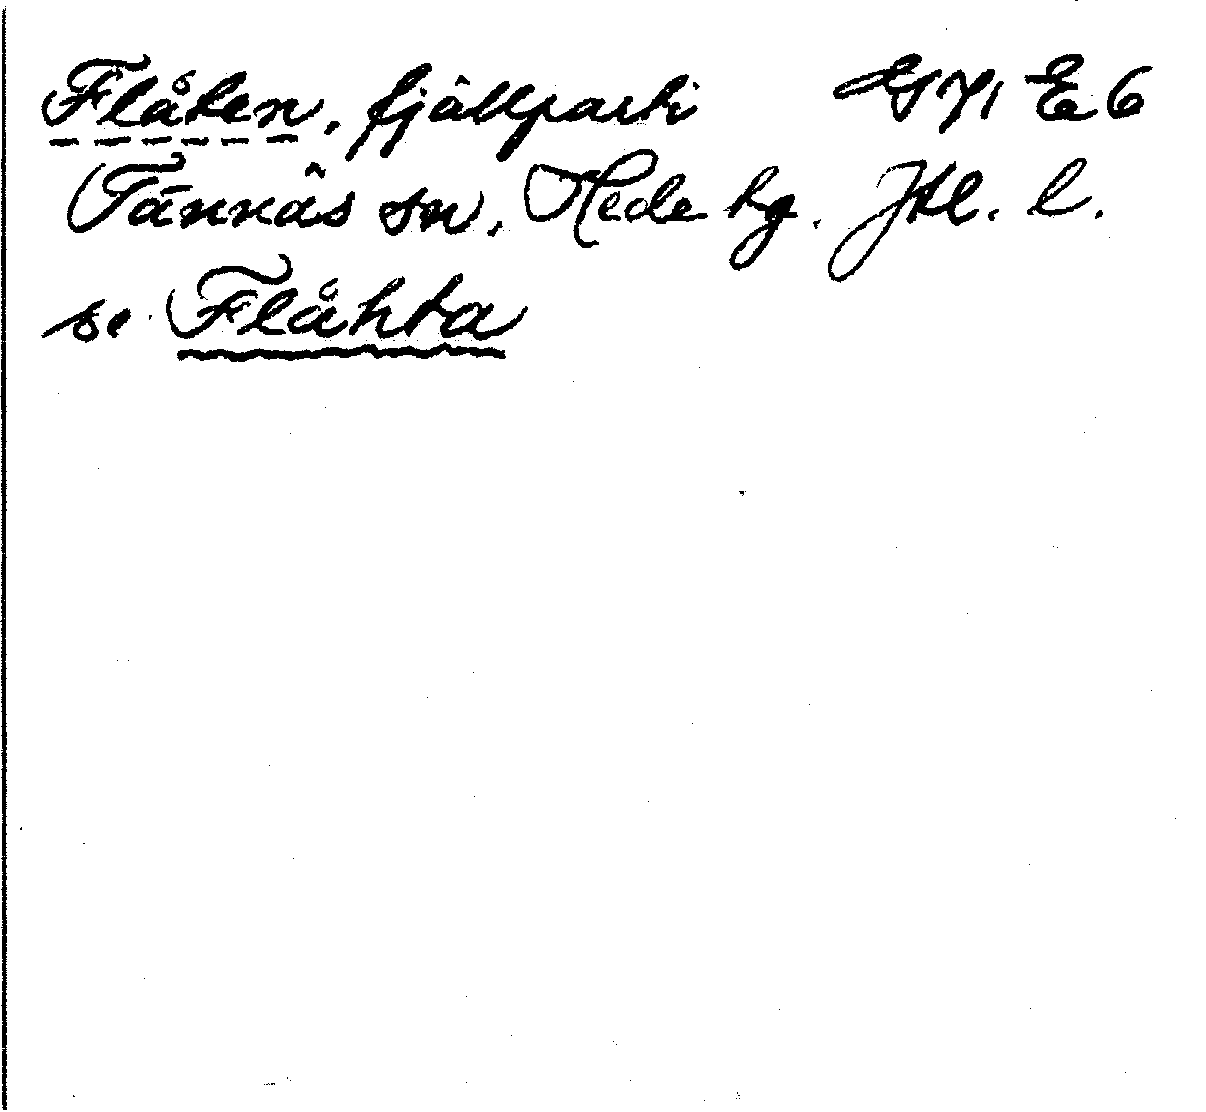 Flåten, fjällparti E6
Tännäs sn, Hede tg. Jtl. l.
se Flåhta